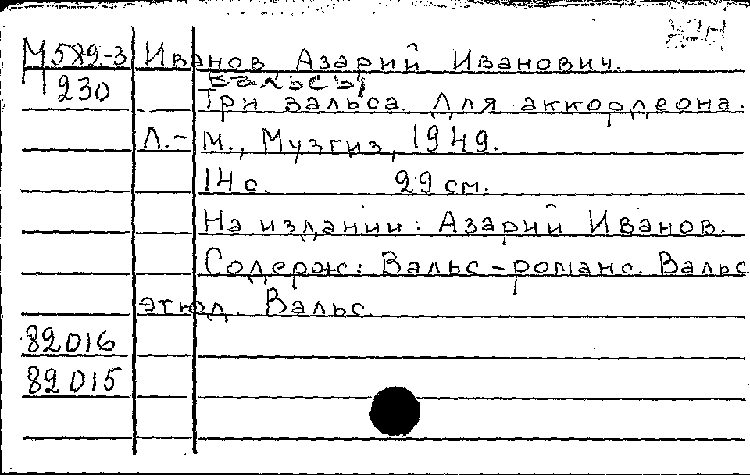 М 589-3 Иванов Азарий Иванович.
Вальсы
230 Три вальса. Для аккордеона.
Л.-М., Музгиз, 1949.
14 с. 29 см.
На издании: Азарий Иванов.
Содерж: Вальс-романс. Вальс
этюд. Вальс.
82016
82015